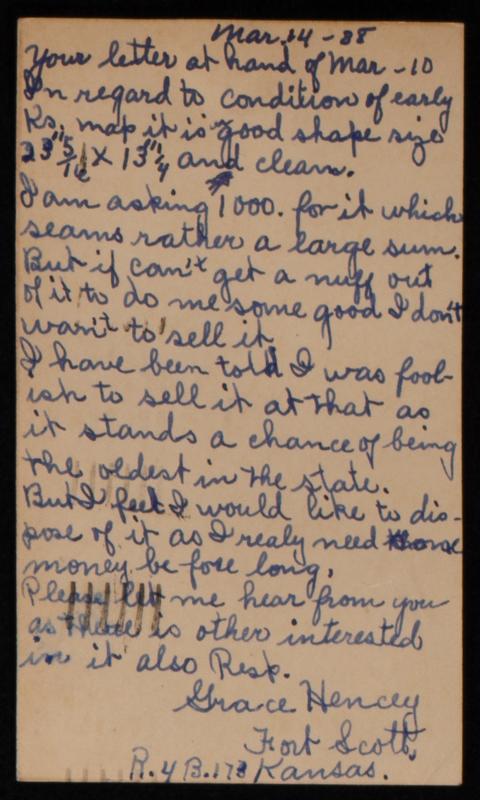 Mar. 14 - 38
Your letter at hand of Mar - 10
In regard to condition of early
Ks. map it is good shape size
23" 5/16 X 13" 1/4 and clean.
I am asking 1000. for it which
seams rather a large sum.
But if can't get a nuff out
of it to do me some good I don't
wan't to sell it
I have been told I was fool-
ish to sell it at that as
it stands a chance of being
the oldest in the state.
But I feel I would like to dis-
pose of it as I realy need some
money be-fore long.
Please let me hear from you
as there is other interested
in it also Resp.
Grace Hencey
Fort Scott,
R. 4 B. 173 Kansas.